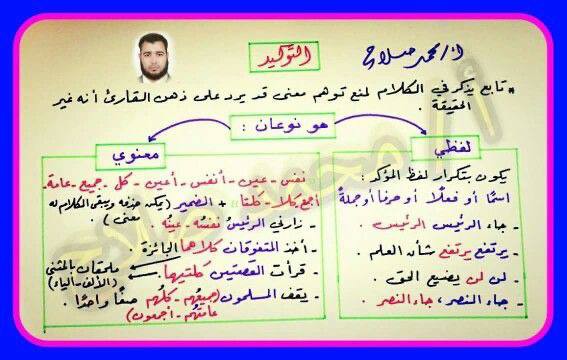 أ/ محمد صلاح
التوكيد
* تابع يذكر في الكلام لمنع توهم معنى قد يرد على ذهن القارئ أنه غير
الحقيقة .
هو نوعان :
لفظي
يكون بتكرار لفظ المؤكد :
اسمًا أو فعلًا أو حرفًا أو جملةً
- جاء الرئيس الرئيس .
- يرتفع يرتفع شأن العلم .
- لن لن يضيع الحق .
- جاء النصر ، جاء النصر .
معنوي
نفس - عين - أنفس - أعين - كل - جميع - عامة -
أجمع كلا - كلتا + الضمير (يمكن حذفه ويبقى الكلام له
معنى)
- زارني الرئيس نفسُه - عينُه .
- أخذ المتفوقان كلاهما الجائزة .
- قرأت القصتين كلتيهما .
ملحقان بالمثنى
(الألف - الياء)
- يقف المسلمون (جميعُهم - كلُّهم صفًّا واحدًا .
عامتُهم - أجمعون)
أ/ محمد صلاح